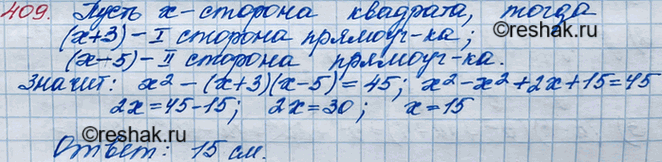 409. Пусть x-сторона квадрата, тогда
(x+3) - I сторона прямоуг-ка;
(x-5) - II сторона прямоуг-ка.
Значит: x² - (x+3)(x-5) = 45; x² - x² + 2x + 15 = 45
2x = 45-15; 2x = 30; x = 15
Ответ: 15 см.